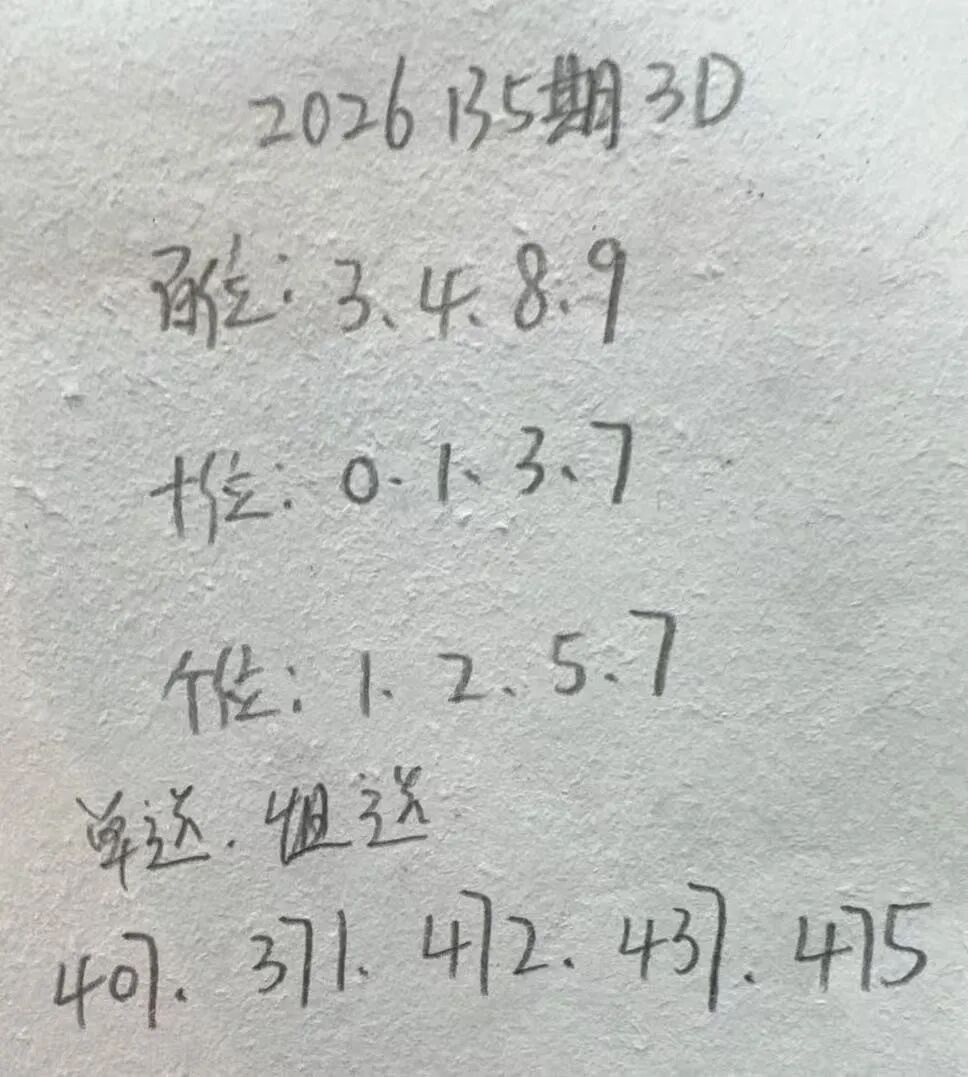 2026135期3D
百位：3、4、8、9
十位：0、1、3、7
个位：1、2、5、7
单选、组选
407、371、472、437、475